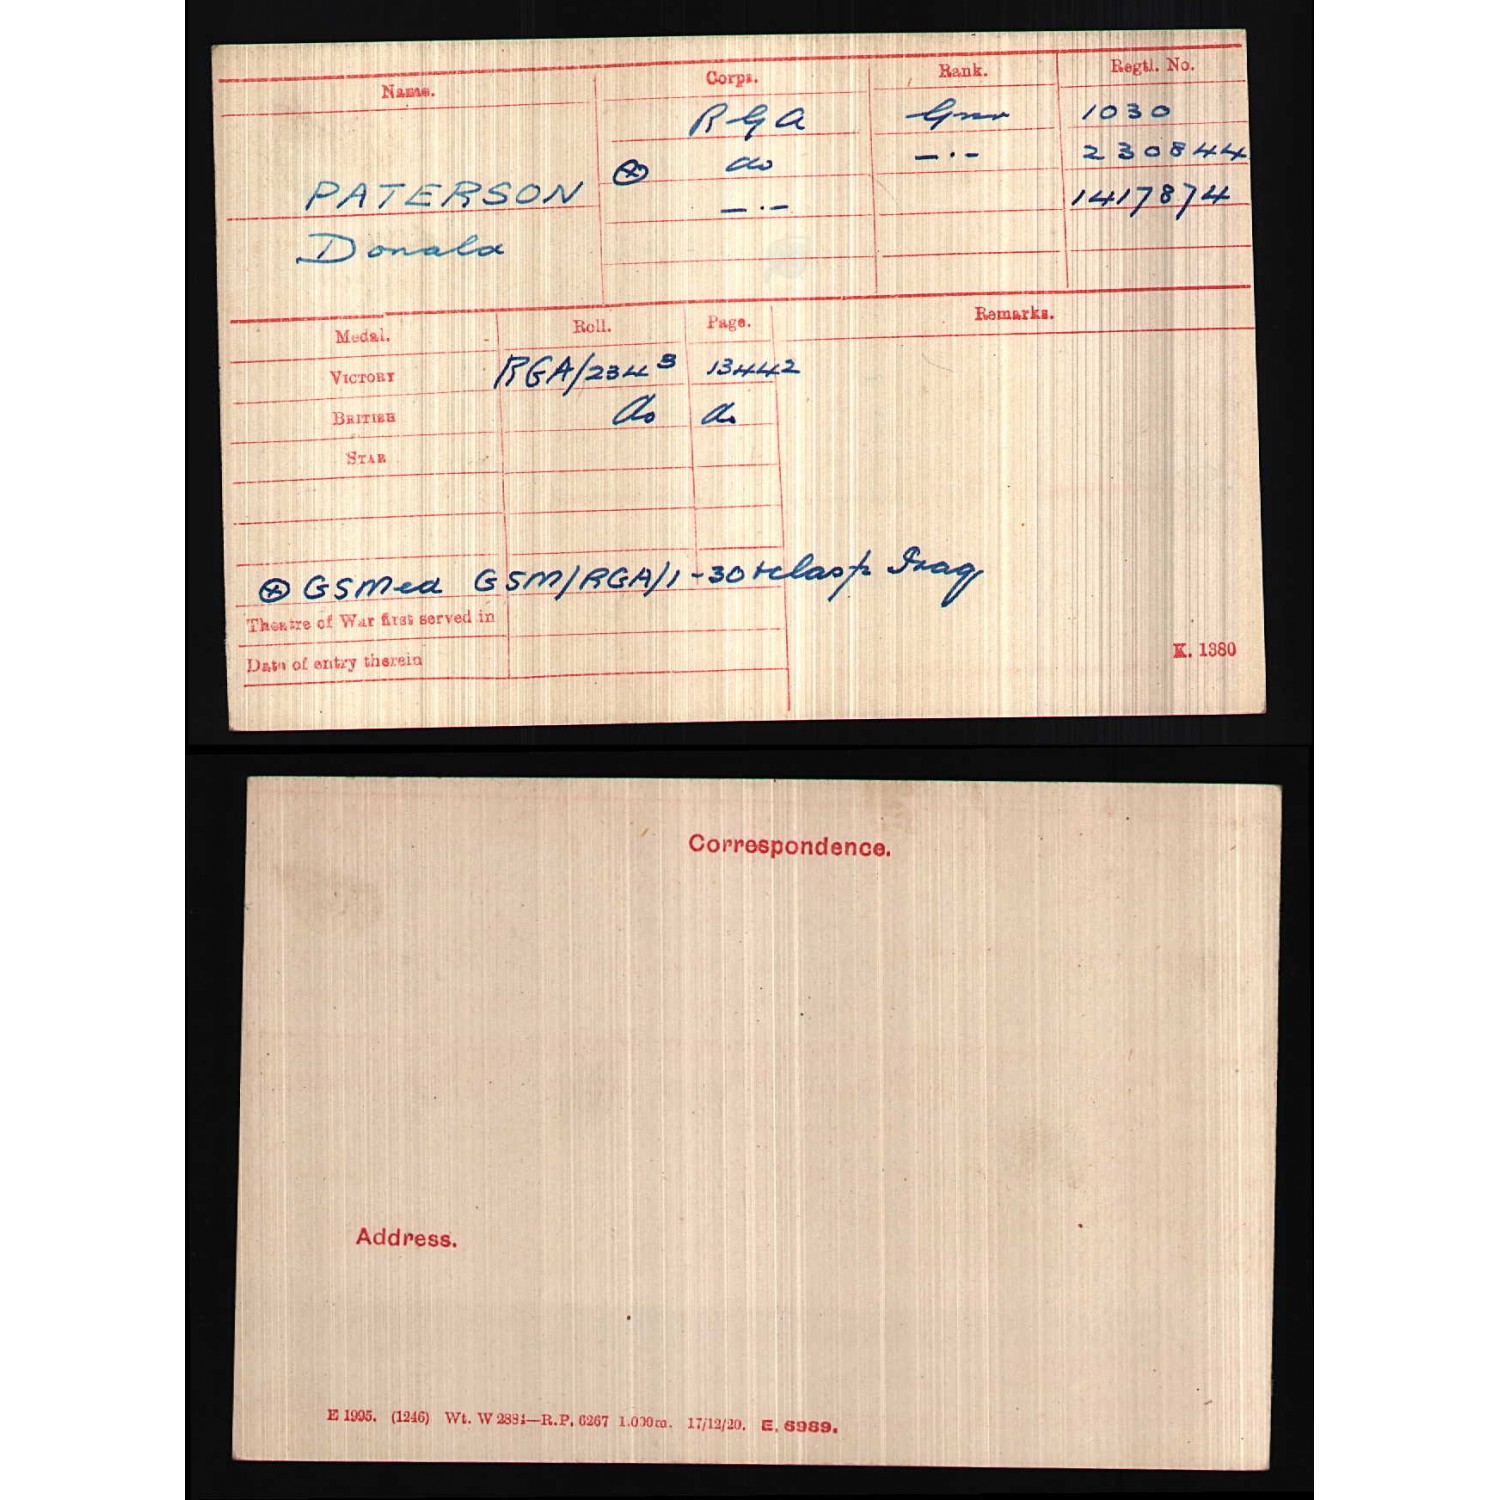 Name. Corps. Rank. Regtl. No.
RGA Gnr 1030
⊗ do —·— 230844
PATERSON —·— 1417874
Donald
Medal. Roll. Page. Remarks.
VICTORY RGA/234B 13442
BRITISH do do
STAR
⊗ GSMed GSM/RGA/1-30 +clasp Iraq
Theatre of War first served in
Date of entry therein
K. 1380
Correspondence.
Address.
E 1995. (1246) Wt. W 2884—R.P. 6267 1.000m. 17/12/20. E. 6989.